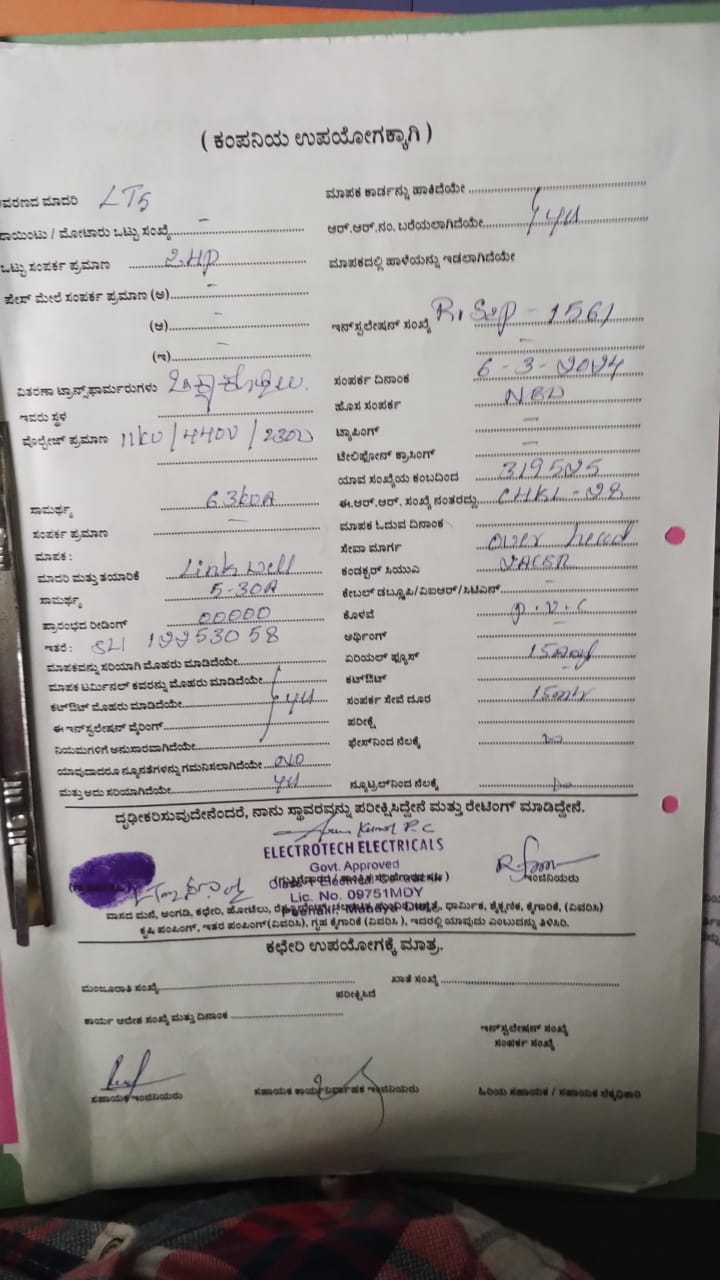 ( ಕಂಪನಿಯ ಉಪಯೋಗಕ್ಕಾಗಿ )
ವರಣದ ಮಾದರಿ LT5
ಮಾಪಕ ಕಾರ್ಡನ್ನು ಹಾಕಿದೆಯೇ
ಾಯಿಂಟು / ಮೋಟಾರು ಒಟ್ಟು ಸಂಖ್ಯೆ –
ಆರ್.ಆರ್.ನಂ. ಬರೆಯಲಾಗಿದೆಯೇ
ಒಟ್ಟು ಸಂಪರ್ಕ ಪ್ರಮಾಣ 2HP
ಮಾಪಕದಲ್ಲಿ ಹಾಳೆಯನ್ನು ಇಡಲಾಗಿದೆಯೇ
ಪೇಸ್ ಮೇಲೆ ಸಂಪರ್ಕ ಪ್ರಮಾಣ (ಅ) –
(ಆ) –
ಇನ್‌ಸ್ಟಲೇಷನ್ ಸಂಖ್ಯೆ - 1561
(ಇ) –
ವಿತರಣಾ ಟ್ರಾನ್ಸ್‌ಫಾರ್ಮರುಗಳು
ಸಂಪರ್ಕ ದಿನಾಂಕ 6-3-2024
ಇವರು ಸ್ಥಳ
ಹೊಸ ಸಂಪರ್ಕ
ವೋಲ್ಟೇಜ್ ಪ್ರಮಾಣ 11KV/440V/230V
ಟ್ಯಾಪಿಂಗ್ –
ಟೆಲಿಫೋನ್ ಕ್ರಾಸಿಂಗ್ –
ಯಾವ ಸಂಖ್ಯೆಯ ಕಂಬದಿಂದ 319525
ಸಾಮರ್ಥ್ಯ 63KVA
ಈ.ಆರ್.ಆರ್. ಸಂಖ್ಯೆ ನಂತರದ್ದು CHKL-28
ಸಂಪರ್ಕ ಪ್ರಮಾಣ –
ಮಾಪಕ ಓದುವ ದಿನಾಂಕ
ಮಾಪಕ :
ಸೇವಾ ಮಾರ್ಗ over head
ಮಾದರಿ ಮತ್ತು ತಯಾರಿಕೆ Linkwell
ಕಂಡಕ್ಟರ್ ಸಿಯುಎ
ಸಾಮರ್ಥ್ಯ 5-30A
ಕೇಬಲ್ ಡಬ್ಲ್ಯೂಪಿ/ವಿಐಆರ್/ಸಿಟಿಎಸ್ –
ಪ್ರಾರಂಭದ ರೀಡಿಂಗ್ 00000
ಕೊಳವೆ P.V.C
ಇತರೆ : 12253058
ಅರ್ಥಿಂಗ್
ಮಾಪಕವನ್ನು ಸರಿಯಾಗಿ ಮೊಹರು ಮಾಡಿದೆಯೇ
ಏರಿಯಲ್ ಫ್ಯೂಸ್
ಮಾಪಕ ಟರ್ಮಿನಲ್ ಕವರನ್ನು ಮೊಹರು ಮಾಡಿದೆಯೇ
ಕಟ್‌ಔಟ್ –
ಕಟ್‌ಔಟ್ ಮೊಹರು ಮಾಡಿದೆಯೇ
ಸಂಪರ್ಕ ಸೇವೆ ದೂರ 15mtr
ಈ ಇನ್‌ಸ್ಟಲೇಷನ್ ವೈರಿಂಗ್
ಪರೀಕ್ಷೆ
ನಿಯಮಗಳಿಗೆ ಅನುಸಾರವಾಗಿದೆಯೇ
ಫೇಸ್‌ನಿಂದ ನೆಲಕ್ಕೆ
ಯಾವುದಾದರೂ ನ್ಯೂನತೆಗಳನ್ನು ಗಮನಿಸಲಾಗಿದೆಯೇ NO
ಮತ್ತು ಅದು ಸರಿಯಾಗಿದೆಯೇ
ನ್ಯೂಟ್ರಲ್‌ನಿಂದ ನೆಲಕ್ಕೆ
ದೃಢೀಕರಿಸುವುದೇನೆಂದರೆ, ನಾನು ಸ್ಥಾವರವನ್ನು ಪರೀಕ್ಷಿಸಿದ್ದೇನೆ ಮತ್ತು ರೇಟಿಂಗ್ ಮಾಡಿದ್ದೇನೆ.
Arun Kumar P.C
ELECTROTECH ELECTRICALS
Govt. Approved
Lic. No. 09751MDY
ಇಂಜಿನಿಯರು
ವಾಸದ ಮನೆ, ಅಂಗಡಿ, ಕಛೇರಿ, ಹೋಟೆಲು, ಧಾರ್ಮಿಕ, ಶೈಕ್ಷಣಿಕ, ಕೈಗಾರಿಕೆ, (ವಿವರಿಸಿ)
ಕೃಷಿ ಪಂಪಿಂಗ್, ಇತರ ಪಂಪಿಂಗ್(ವಿವರಿಸಿ), ಗೃಹ ಕೈಗಾರಿಕೆ (ವಿವರಿಸಿ ), ಇದರಲ್ಲಿ ಯಾವುದು ಎಂಬುದನ್ನು ತಿಳಿಸಿರಿ.
ಕಛೇರಿ ಉಪಯೋಗಕ್ಕೆ ಮಾತ್ರ.
ಮಂಜೂರಾತಿ ಸಂಖ್ಯೆ ಖಾತೆ ಸಂಖ್ಯೆ
ಪರೀಕ್ಷಿಸಿದೆ
ಕಾರ್ಯ ಆದೇಶ ಸಂಖ್ಯೆ ಮತ್ತು ದಿನಾಂಕ
ಇನ್‌ಸ್ಟಲೇಷನ್ ಸಂಖ್ಯೆ
ಸಂಪರ್ಕ ಸಂಖ್ಯೆ
ಸಹಾಯಕ ಇಂಜಿನಿಯರು ಸಹಾಯಕ ಕಾರ್ಯನಿರ್ವಾಹಕ ಇಂಜಿನಿಯರು ಹಿರಿಯ ಸಹಾಯಕ / ಸಹಾಯಕ ಲೆಕ್ಕಾಧಿಕಾರಿ